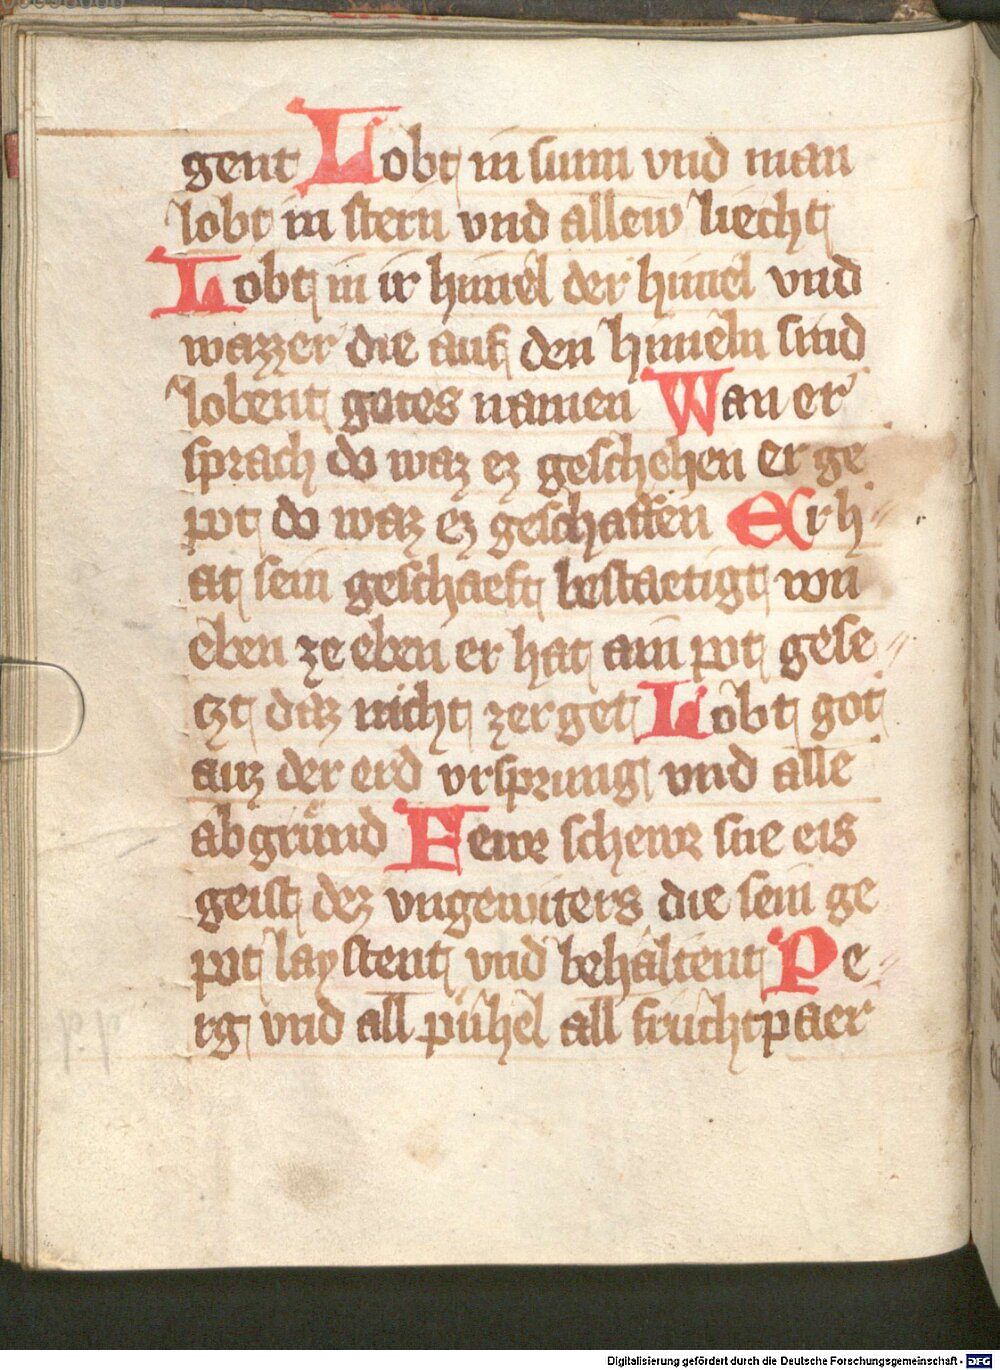 gent Lobt in sunn vnd man
lobt in stern vnd allew liecht
Lobt in ir himel der himel vnd
wazzer die auf den himeln sind
lobent gotes namen Wan er
sprach do waz ez geschehen er ge
pot do waz ez geschaffen Er h
at sein geschaeft bestaetigt vnn
eben ze eben er hat ain pot gese
tzt daz nicht zerget Lobt got
auz der erd vrsprung vnd alle
abgründ Fewr schewr sne eis
geist dez vngewiters die sein ge
pot laystent vnd behaltent Pe
rg vnd all pühel all fruchtpaer
Digitalisierung gefördert durch die Deutsche Forschungsgemeinschaft - DFG